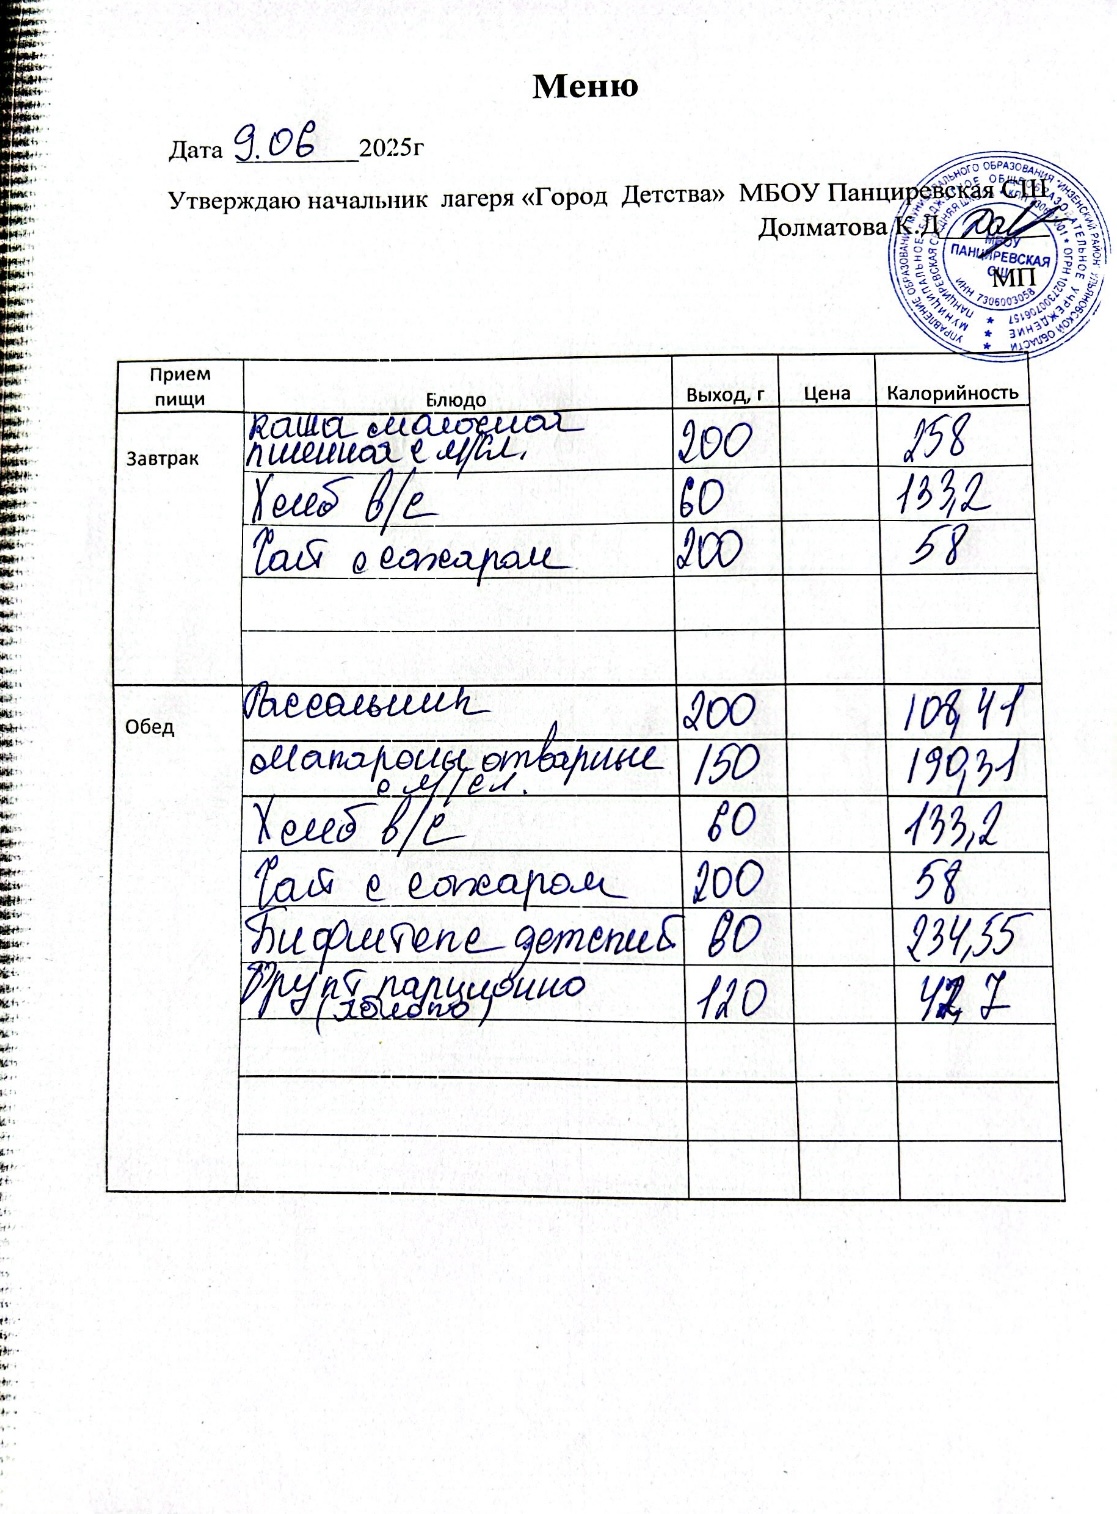 Меню
Дата 9.06 2025г
Утверждаю начальник лагеря «Город Детства» МБОУ Панциревская СШ
Долматова К.Д
МП
МБОУ
ПАНЦИРЕВСКАЯ
СШ
ИНН 7306003058
Прием пищи Блюдо Выход, г Цена Калорийность
Завтрак
каша молочная
пшенная с м/сл. 200 258
Хлеб в/с 60 133,2
Чай с сахаром 200 58
Обед
Рассольник 200 108,41
Макароны отварные 150 190,31
с м/сл.
Хлеб в/с 60 133,2
Чай с сахаром 200 58
Бифштекс детский 80 234,55
Фрукт парционно 120
(яблоко)